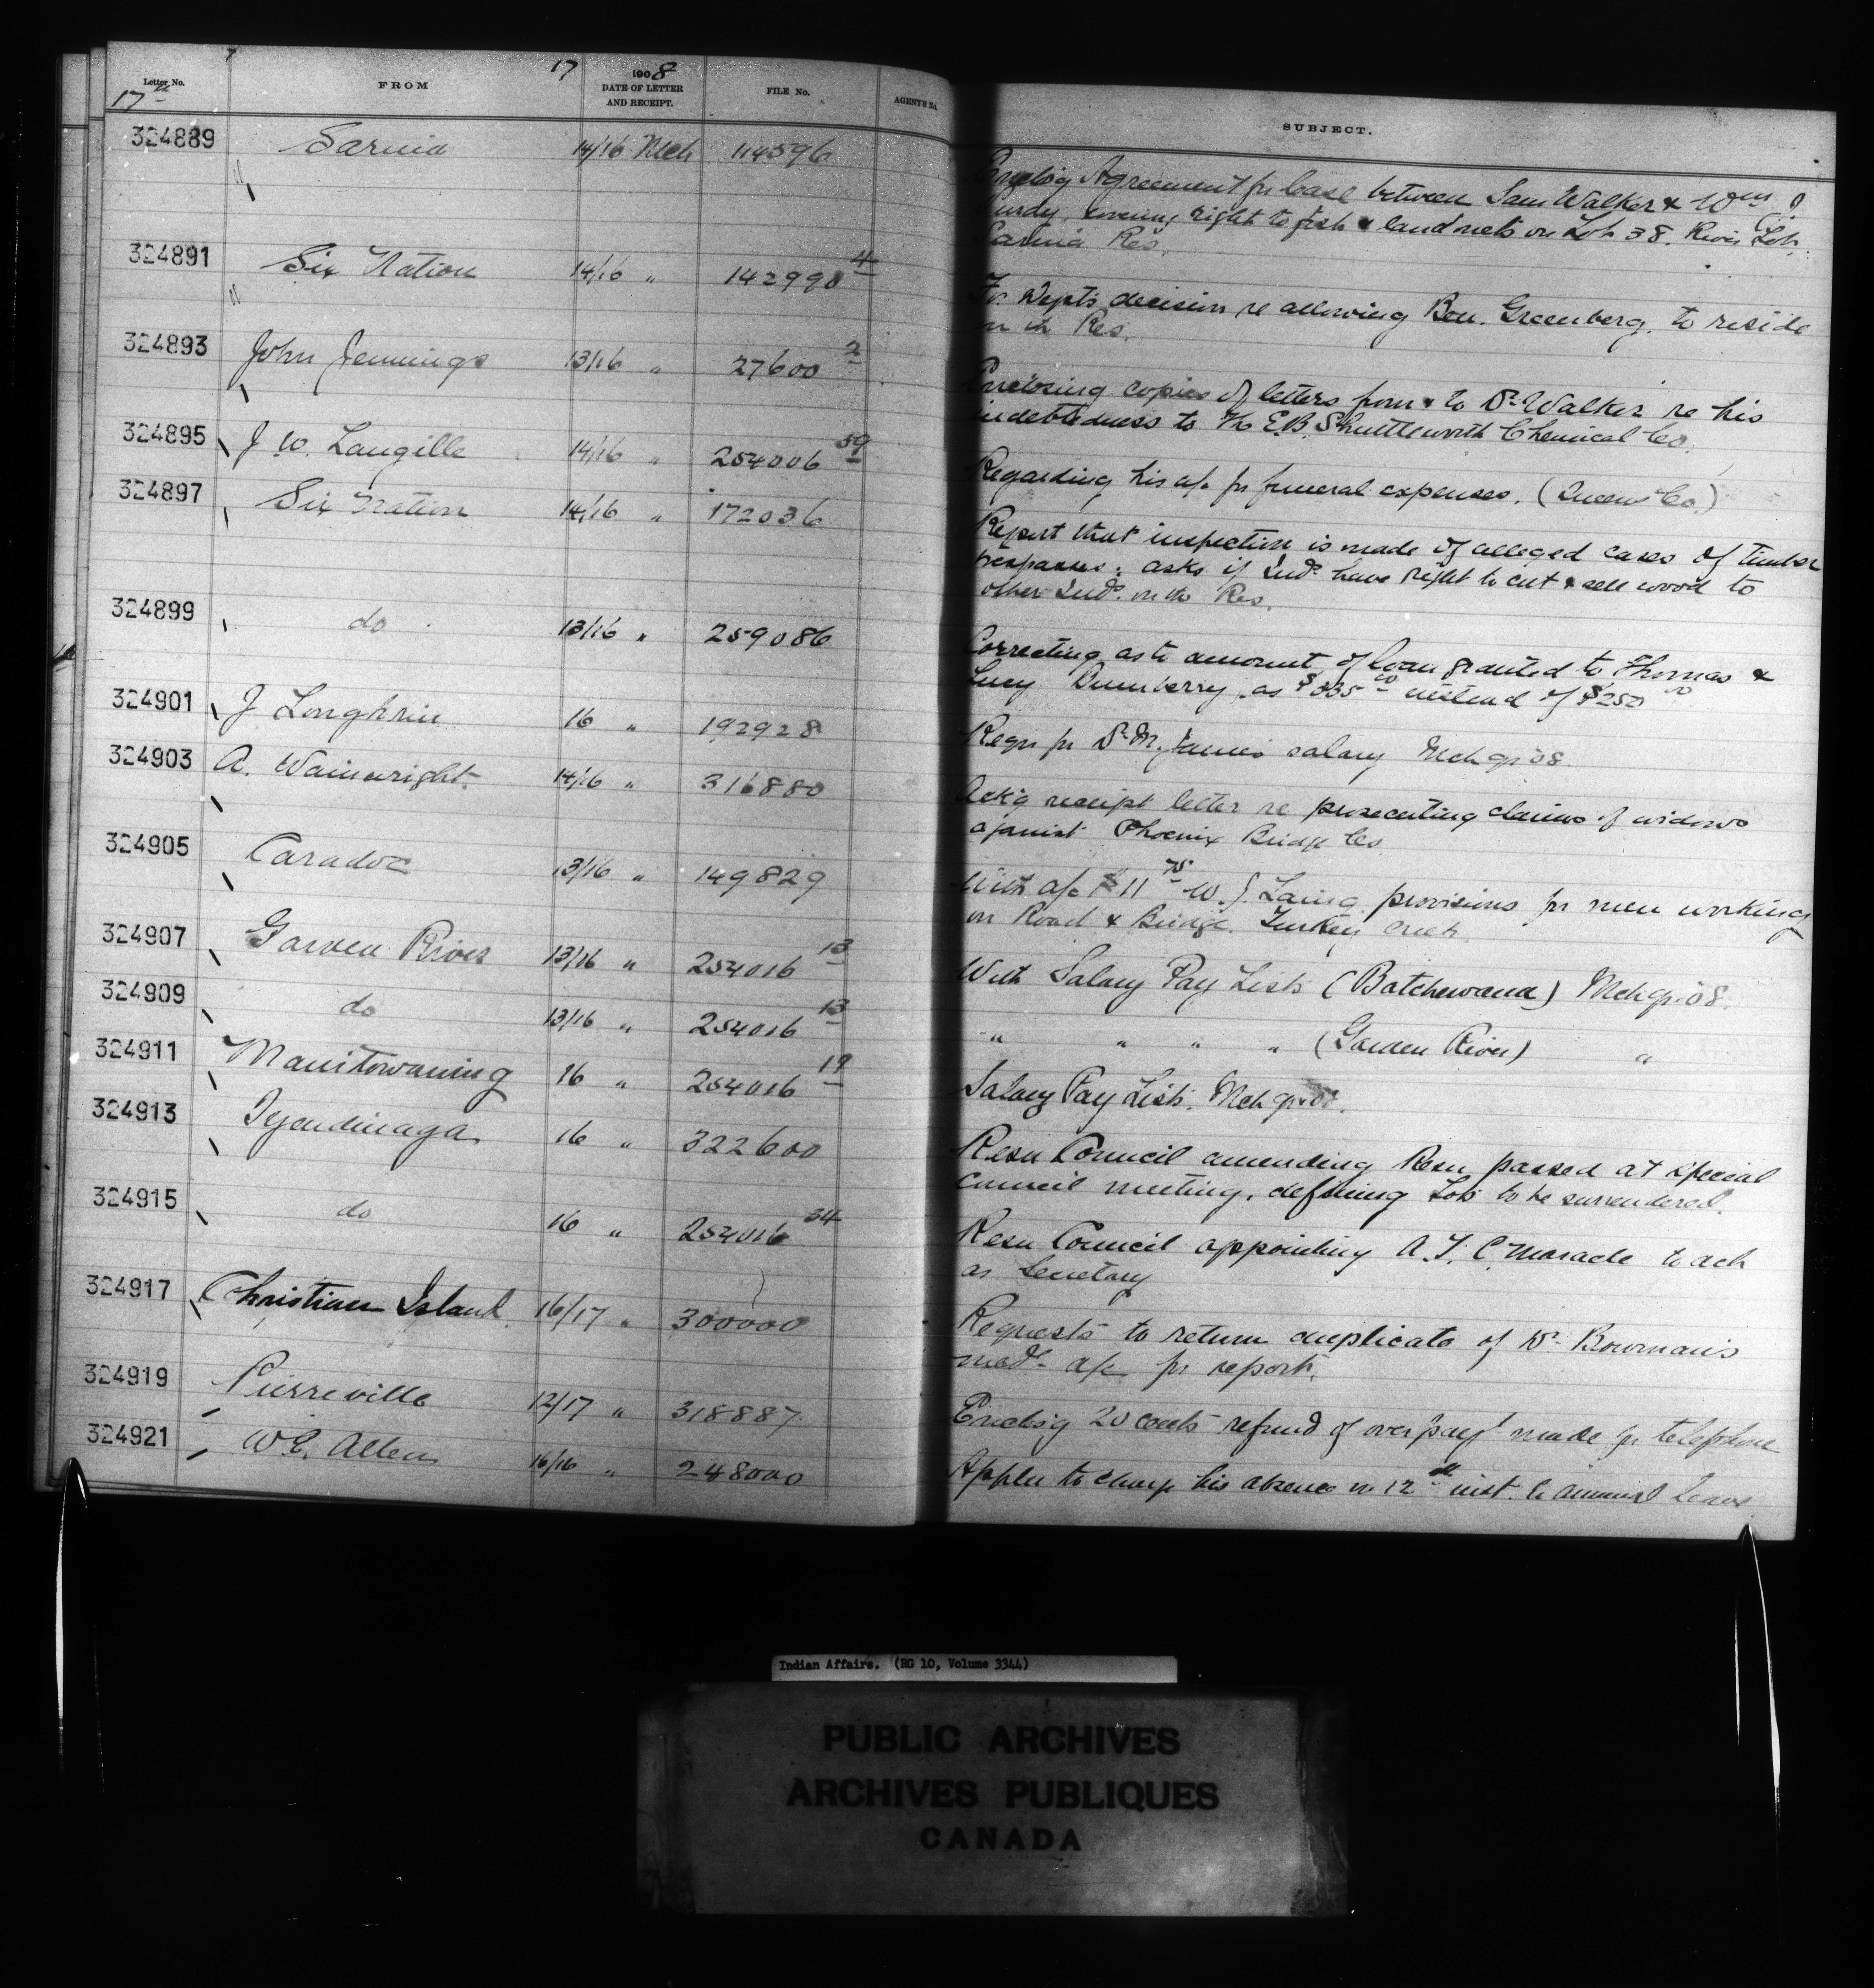 7 17
Letter No. FROM 1908 DATE OF LETTER AND RECEIPT. FILE No. AGENT'S No. SUBJECT.
17th
324889 Sarnia 14/16 Mch 114596 Encls'g Agreement for lease between Sam Walker & Wm J
Purdy, covering right to fish & land nets on Lot 38. River Lot.
Sarnia Res.
324891 Six Nation 14/16 " 142990 4 For Dept's decision re allowing Ben. Greenberg, to reside
on th Res.
324893 John Jennings 13/16 " 27600 2 Enclosing copies of letters from & to Dr Walker re his
indebtedness to th E.B. Shuttleworth Chemical Co.
324895 J W. Langille 14/16 " 254006 59 Regarding his a/c for funeral expenses. (Queens Co.)
324897 Six Nation 14/16 " 172036 Report that inspection is made of alleged cases of timber
trespasses; asks if Inds have right to cut & sell wood to
other Inds. on th Res.
324899 do 13/16 " 259086 Correcting as to amount of loan granted to Thomas &
Lucy Dunberry, as $335 00 instead of $250 00
324901 J Longhrin 16 " 192928 Reqn for Dr. M. James salary Mch qr '08.
324903 A. Wainwright. 14/16 " 316880 Ack'g receipt letter re prosecuting claims of widows
against Phoenix Bridge Co
324905 Caradoc 13/16 " 149829 With a/c $11 75 W. J. Laing provisions for men working
on Road & Bridge. Turkey Creek.
324907 Garden River 13/16 " 254016 13 With Salary Pay Lists (Batchewana) Mch qr. '08.
324909 do 13/16 " 254016 13 " " " " (Garden River) "
324911 Manitowaning 16 " 254016 19 Salary Pay Lists. Mch qr '08.
324913 Tyendinaga 16 " 322600 Resn Council amending Resn passed at special
Council meeting, defining Lots to be surrendered.
324915 do 16 " 254016 34 Resn Council appointing A. T. C. Maracle to act
as Secretary
324917 Christian Island 16/17 " 300000 Requests to return duplicate of Dr. Bowman's
medl. a/c for report.
324919 Pierreville 12/17 " 318887 Encls'g 20 cents refund of overpayt made for telephone
324921 W E. Allen 16/16 " 248000 Appln to charge his absence on 12th inst. to annual leave
Indian Affairs. (RG 10, Volume 3344)
PUBLIC ARCHIVES
ARCHIVES PUBLIQUES
CANADA